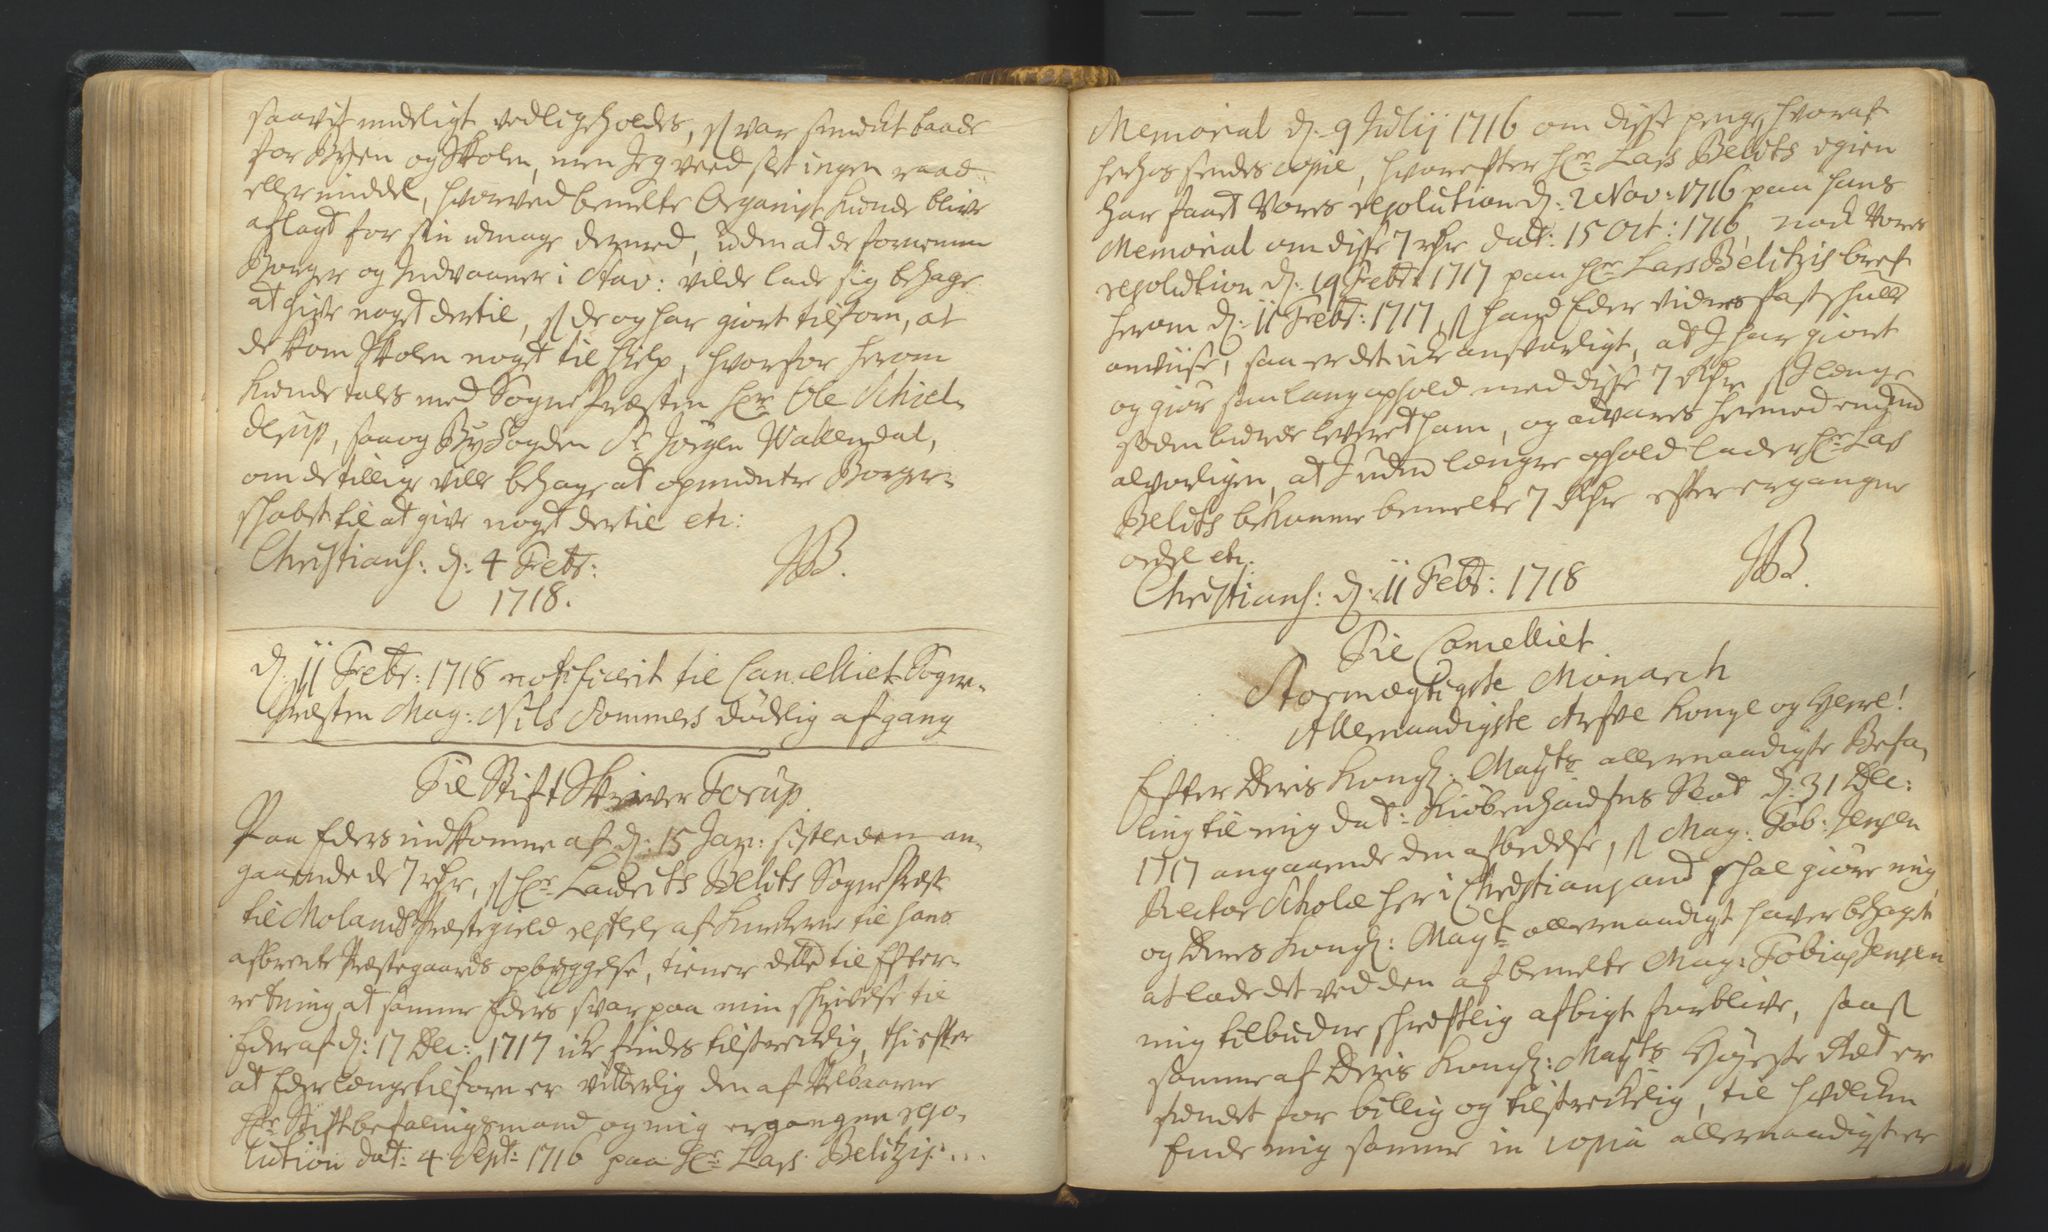 saavit mueligt vedligeholdes, som var smucht baade
for Byen og Skolen, men Jeg veed slet ingen raad
eller middel, hvorved bemelte Organist kunde blive
aflagt for sin umage dermed, uden at de fornemme
Borger og Indvaaner i Stav: vilde lade sig behage
at give noget dertil, som de og har giort tilforn, at
de kom Skolen noget til hielp, hvorfor herom
kunde tales med SognePresten Hr: Ole Schiel-
derup, saa og ByFogden Sr. Jørgen Wallendal,
om de tillige ville behage at opmuntre Borger-
skabet til at give noget dertil etc:
Christians: d: 4 Febr:
1718.
JB.
d: 11 Febr: 1718 notificerit til Cancelliet Sogne-
Præsten Mag: Nils Sommers dødelig afgang
Til StiftSkriver Torup.
Paa Eders indkomne af d: 15 Jan: sistleden an-
gaaende de 7 rdr, som Hr: Laurits Belits SognePræst
til Molands Præstegield resterer af Kirkerne til hans
afbrente Præstegaards opbyggelse, tiener dette til Efter-
retning at samme Eders svar paa min skrivelse til
Eder af d: 17 Dec: 1717 icke findes tilstreckelig, thi efter
at Eder længe tilforn er vitterlig den af Velbaarne
Hr: Stiftbefalingsmand og mig ergangne reso-
lution dat: 4 Sept: 1716 paa Hr: Lars Belitzis...
Memorial d: 9 Julij 1716 om disse penge, hvoraf
herhos sendes copie, hvorefter Hr: Lars Belits igien
har faaet Vores resolution d: 2 Nov: 1716 paa hans
Memorial om disse 7 rdr dat: 15 Oct: 1716, nock Vores
resolution d: 19 Febr: 1717 paa Hr: Lars Belitzis bref
herom d: 11 Febr: 1717, som hand Eder videre skulle
anviise, saa er det icke ansvarligt, at I har giort
og giør saa lang ophold med disse 7 Rdr som I længe
siden burde leveret ham, og advares hermed endnu
alvorligen, at I uden længere ophold lader Hr: Lars
Belits bekomme bemelte 7 Rdr efter ergangne
ordre etc:
Christians: d: 11 Febr: 1718
JB.
Til Cancelliet.
Stormægtigste Monarch
Allernaadigste Arfve Konge og Herre!
Efter Deris Kongl: Mayts allernaadigste Befa-
ling til mig dat: Kiøbenhafns Slot d: 31 Dec:
1717 angaaende den afbedelse, som Mag: Tob: Jensen
Rector Scholæ her i Christiansand skal giøre mig,
og Deres Kongl: Mayt allernaadigst haver behaget
at lade det ved den af bemelte Mag: Tobias Jensen
mig tilbudne skriftlig afbigt forblive, saasom
samme af Deris Kongl: Mayts Høyeste Ræt er
fundet for billig og tilstreckelig, til hvilken
Ende mig samme in copia allernaadigst er